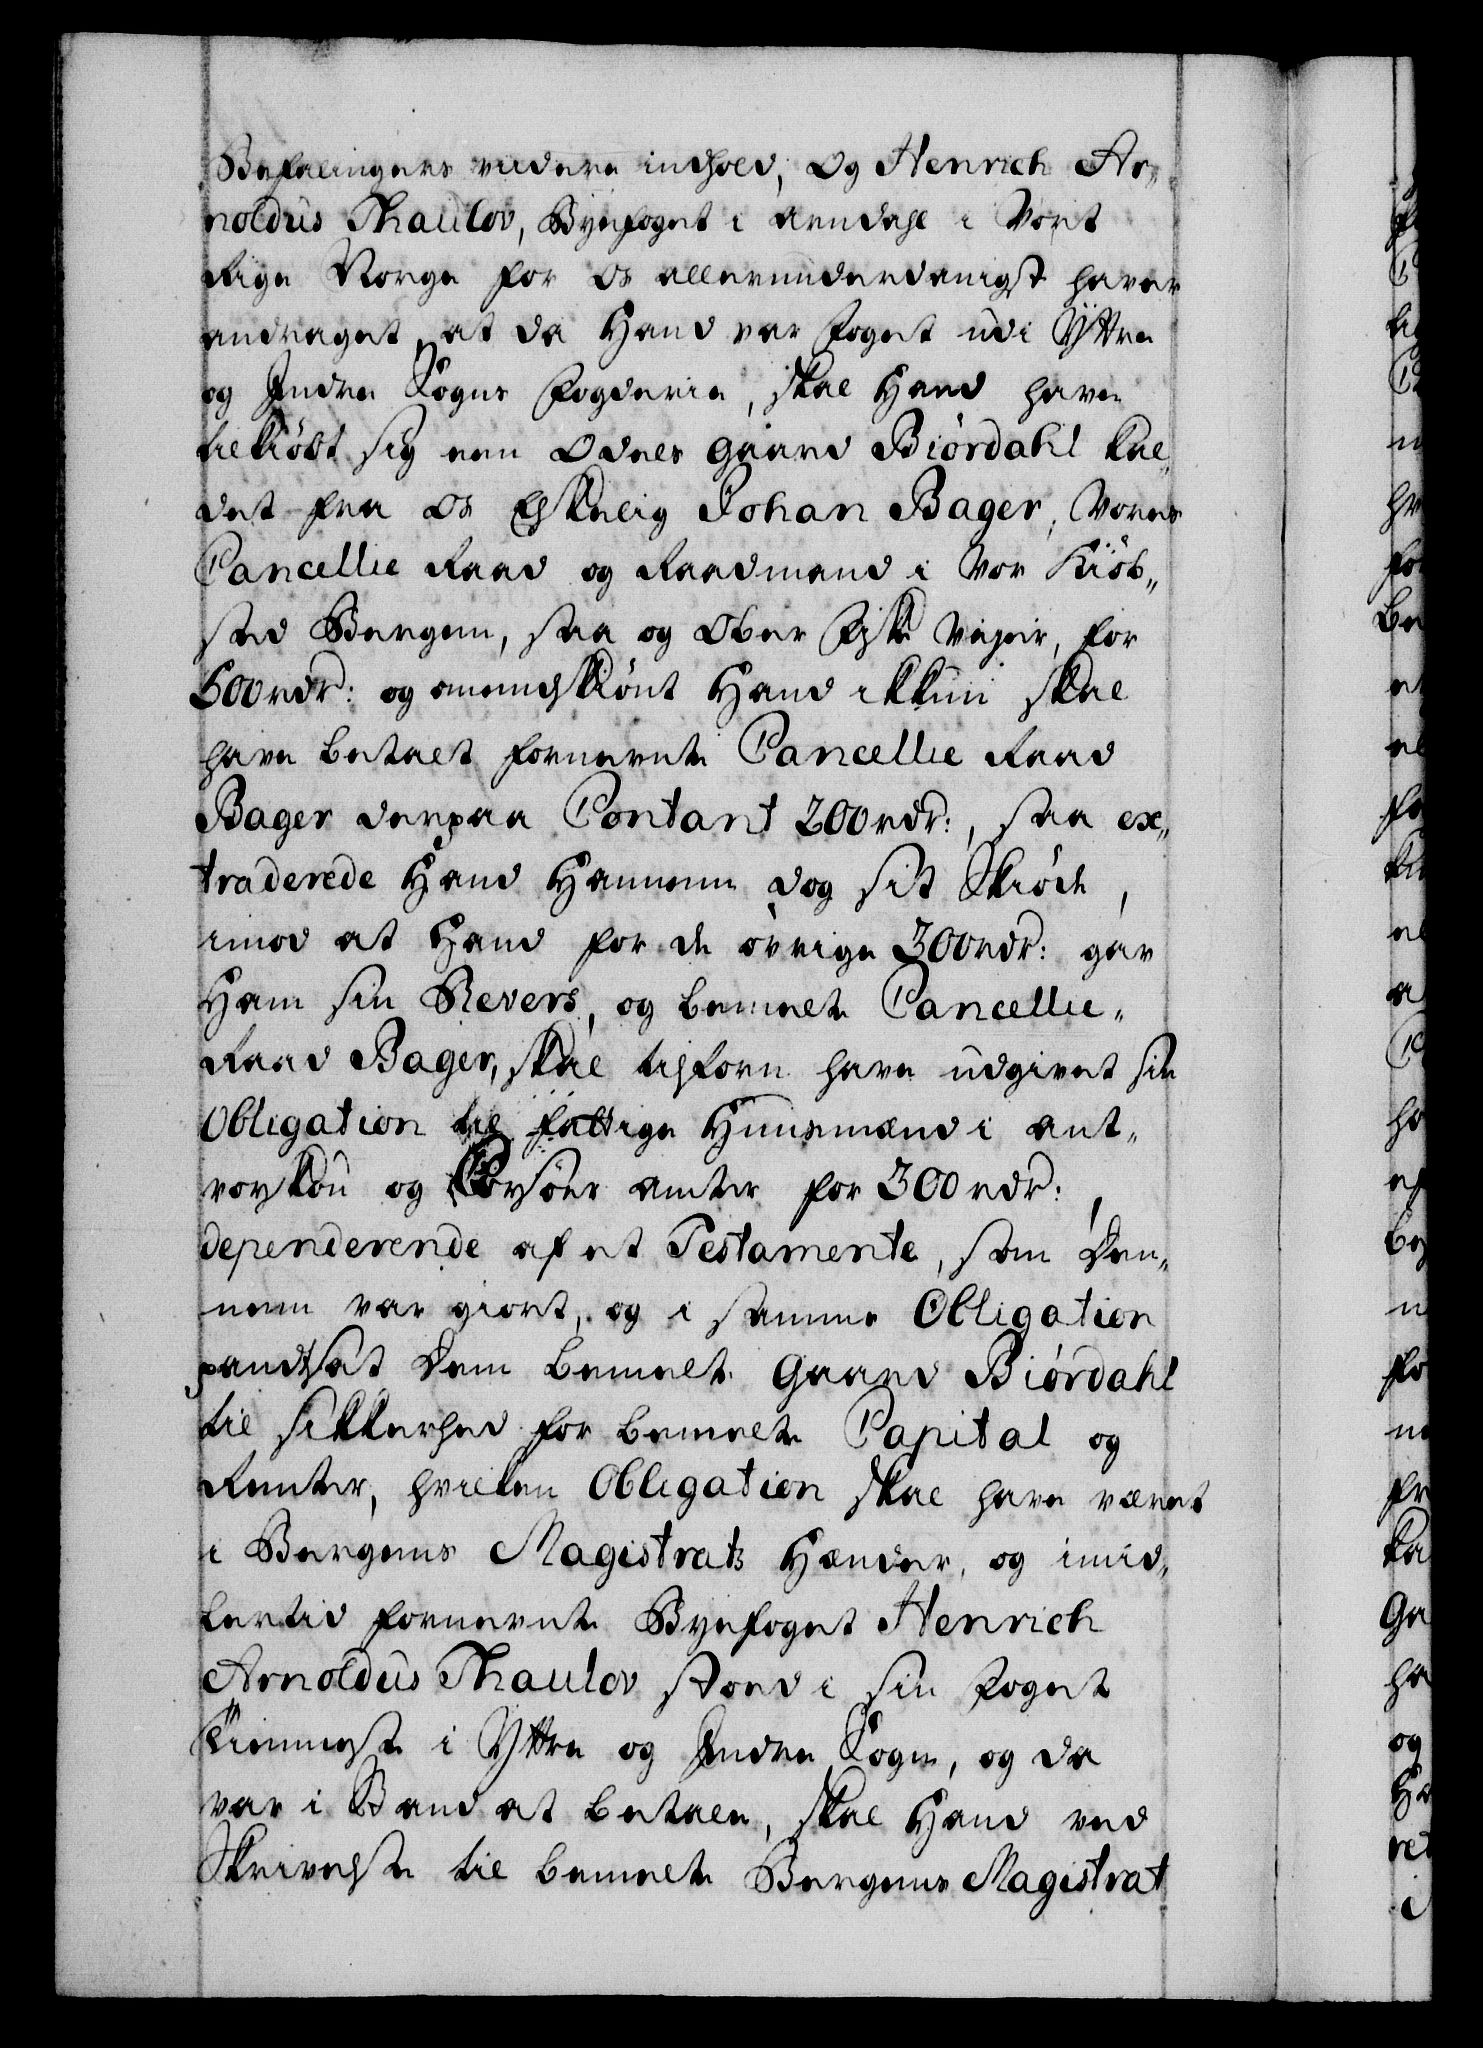 Befalingers viidere indhold, Og Henrich Ar„
noldus Thaulov, Byefoget i Arndahl i Vort
Rige Norge for os allerunderdanigst haver
andraget, at da Hand var Foget udi Yttre
og Indre Sogns Fogderie, skal Hand have
tilkiöbt sig een Odels Gaard Biördahl kal„
det fra os Elskelig Johan Bager, Vores
Cancellie Raad og Raadmand i Vor Kiöb„
sted Bergen, saa og Ober Fiske Vejer, for
500 rdr: og omendskiönt Hand ikkun skal
have betalt fornevnte Cancellie Raad
Bager derpaa Contant 200 rdr:, saa ex„
traderede Hand Hannem dog sit Skiöde,
imod at Hand for de övrige 300 rdr: gav
Ham sin Revers, og bemelte Cancellie„
Raad Bager, skal tilforn have udgivet sin
Obligation til fattige Huusmænd i Ant„
vorskou og Corsöer amter for 300 rdr:,
dependerende af et Testamente, som Den„
nem var giort, og i samme Obligation
pandtsat Dem bemelte Gaard Biördahl
til Sikkerhed for bemelte Capital og
Renter, hvilken Obligation skal have været
i Bergens Magistrats Hænder, og imid„
lertid fornevnte Byefoget Henrich
Arnoldus Thaulov stoed i sin Foget
Tienneste i Yttre og Indre Sogn, og da
var i Stand at betale, skal Hand ved
Skrivelse til bemelte Bergens Magistrat